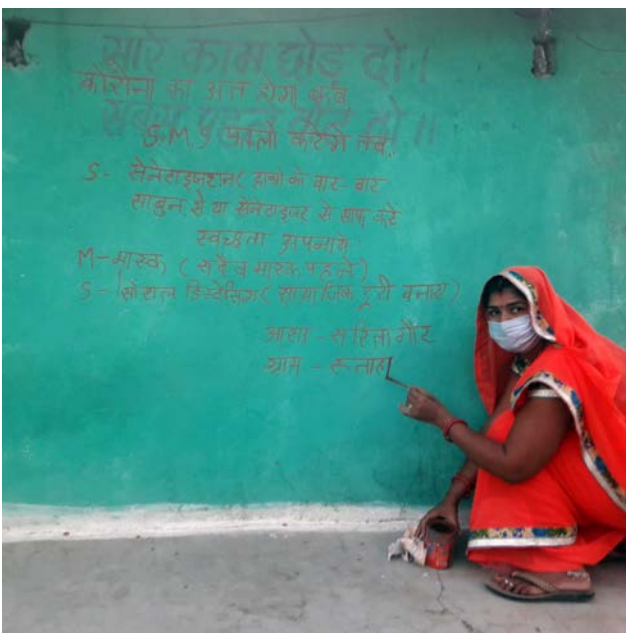 सारे काम छोड़ दो।
कोरोना का अंत होगा कब
सबसे पहले वोट दो॥
S.M.S फालो करेंगे तब.
S- सेनेटाइजेशन( हाथो को बार-बार
साबुन से या सेनेटाइजर से साफ करे
स्वच्छता अपनाये
M-मास्क (सदैव मास्क पहने)
S- सोशल डिस्टेंसिंग( सामाजिक दूरी बनाये)
आशा - सरिता गौर
ग्राम -